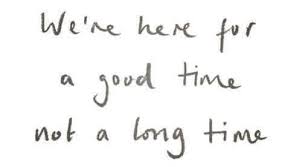 We're here for
a good time
not a long time